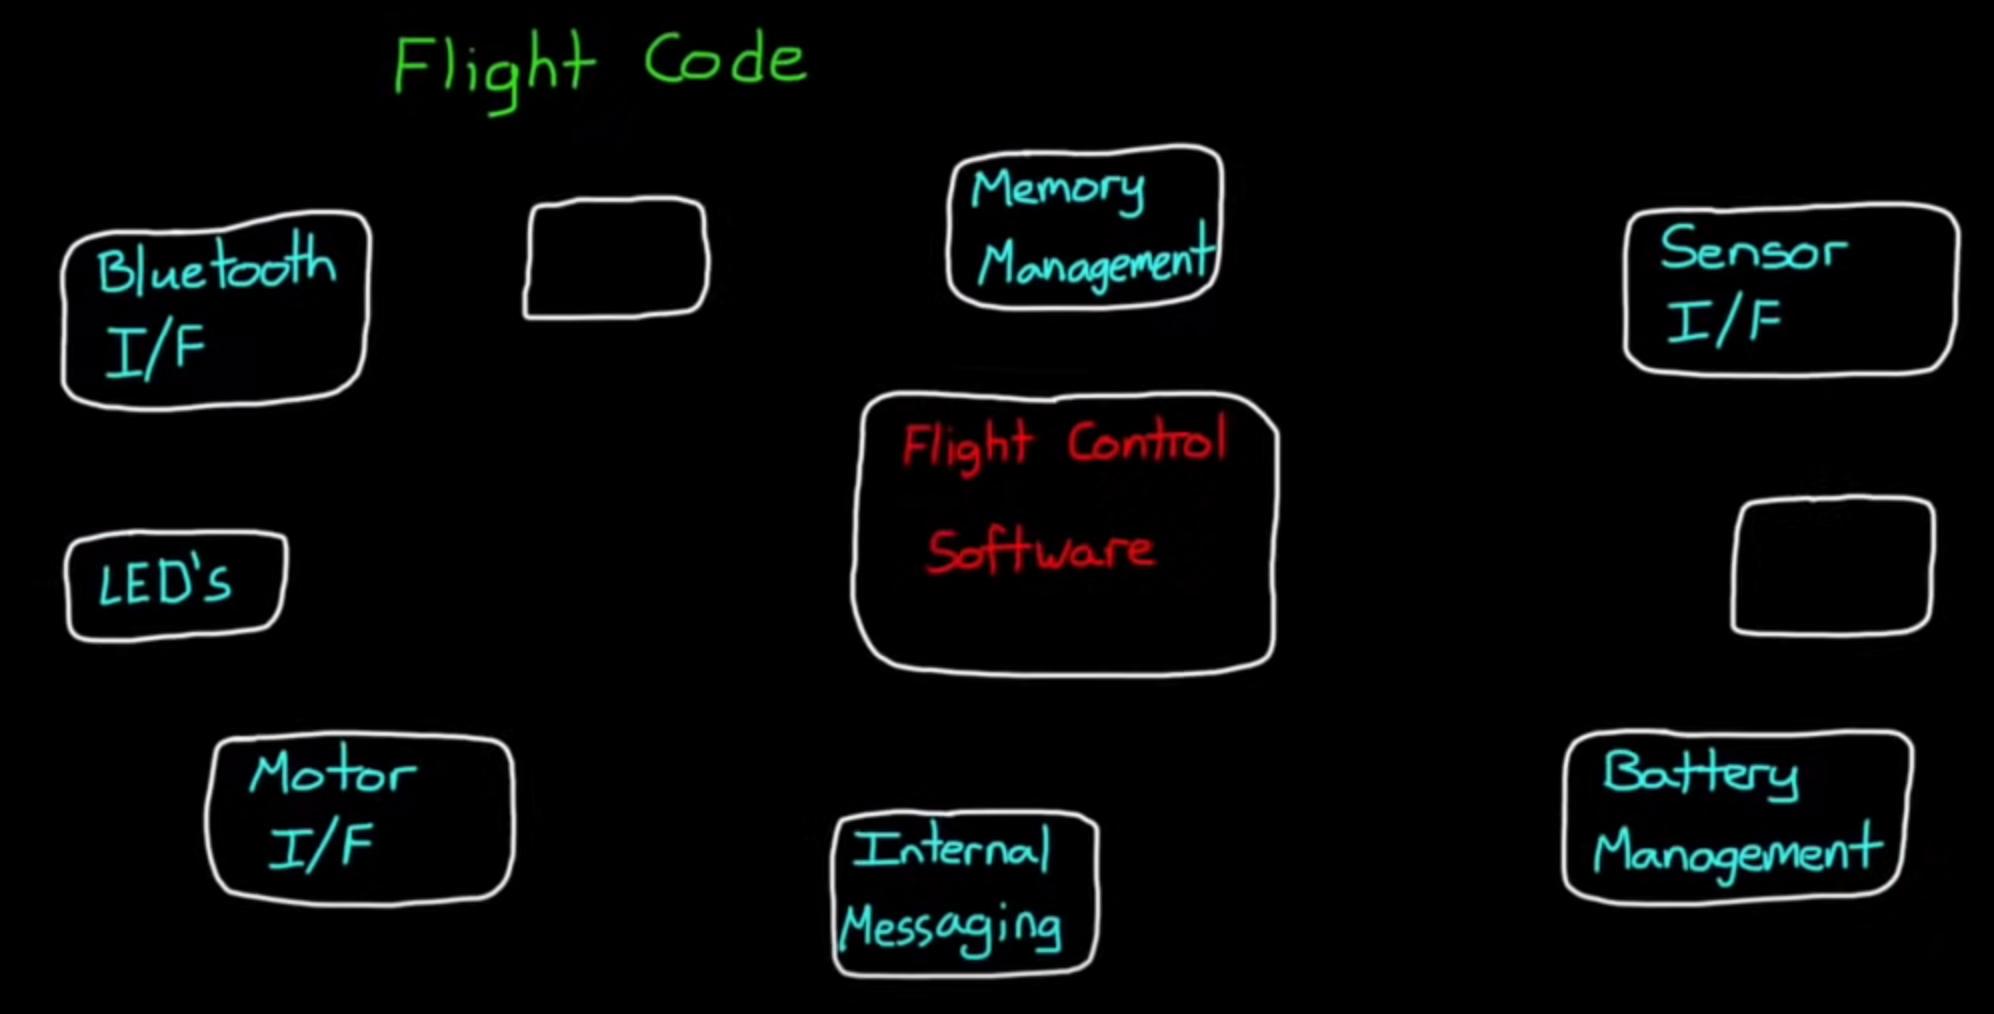 Flight Code
Memory
Management
Bluetooth
I/F
Sensor
I/F
Flight Control
Software
LED's
Motor
I/F
Internal
Messaging
Battery
Management